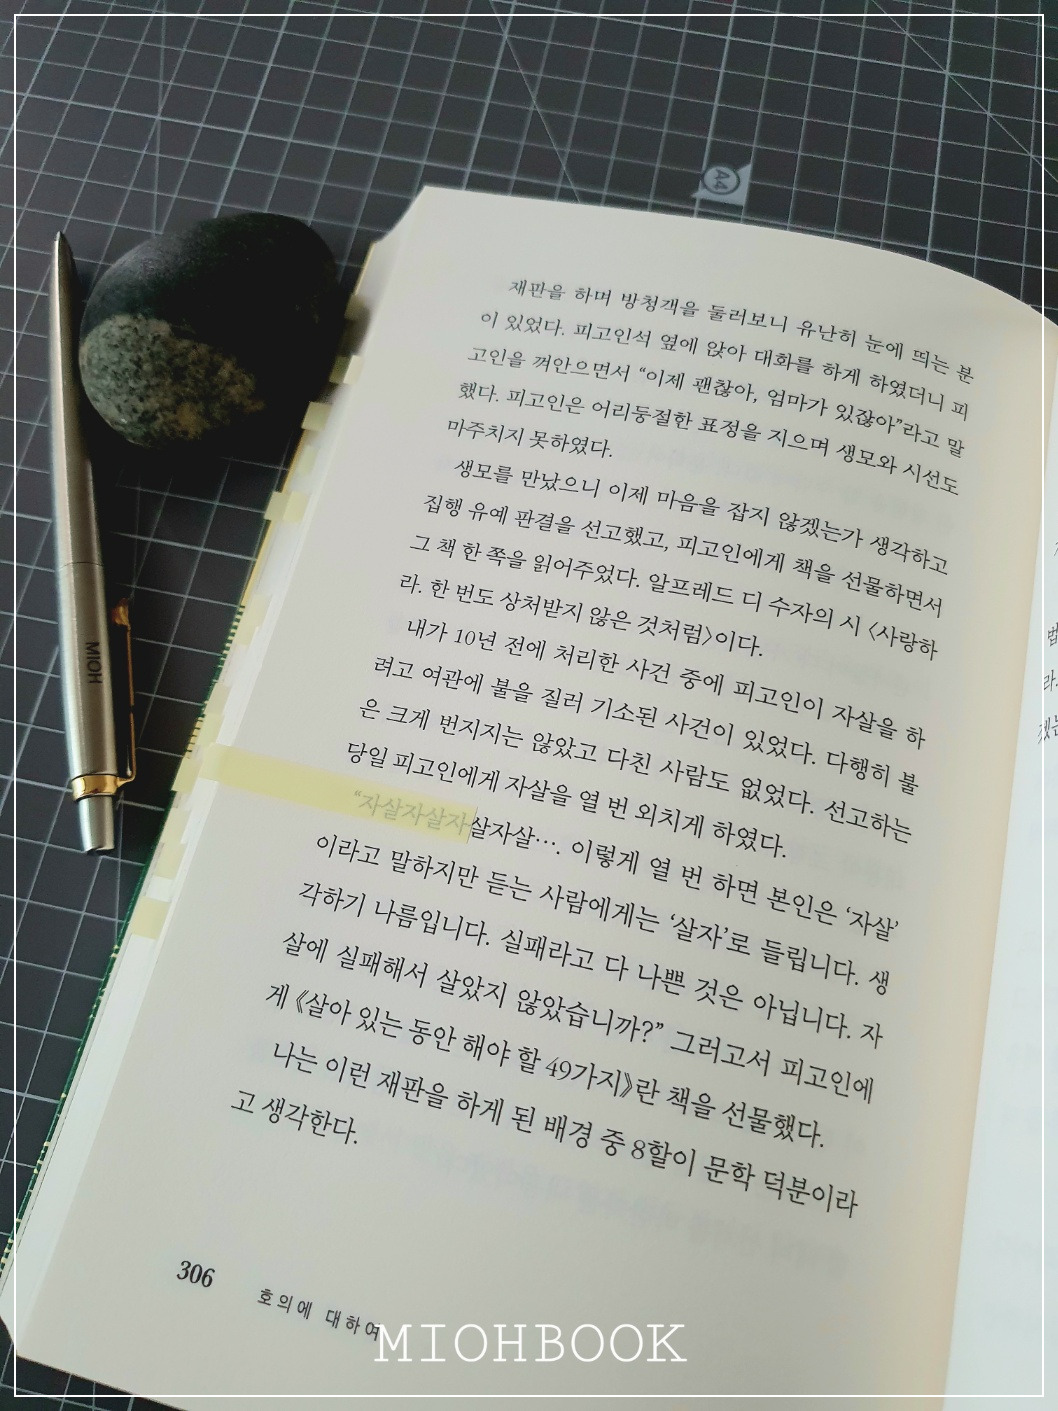 A4
재판을 하며 방청객을 둘러보니 유난히 눈에 띄는 분
이 있었다. 피고인석 옆에 앉아 대화를 하게 하였더니 피
고인을 껴안으면서 “이제 괜찮아, 엄마가 있잖아”라고 말
했다. 피고인은 어리둥절한 표정을 지으며 생모와 시선도
마주치지 못하였다.
생모를 만났으니 이제 마음을 잡지 않겠는가 생각하고
집행 유예 판결을 선고했고, 피고인에게 책을 선물하면서
그 책 한 쪽을 읽어주었다. 알프레드 디 수자의 시 〈사랑하
라. 한 번도 상처받지 않은 것처럼〉이다.
내가 10년 전에 처리한 사건 중에 피고인이 자살을 하
려고 여관에 불을 질러 기소된 사건이 있었다. 다행히 불
은 크게 번지지는 않았고 다친 사람도 없었다. 선고하는
당일 피고인에게 자살을 열 번 외치게 하였다.
“자살자살자살자살…. 이렇게 열 번 하면 본인은 ‘자살’
이라고 말하지만 듣는 사람에게는 ‘살자’로 들립니다. 생
각하기 나름입니다. 실패라고 다 나쁜 것은 아닙니다. 자
살에 실패해서 살았지 않았습니까?” 그러고서 피고인에
게 《살아 있는 동안 해야 할 49가지》란 책을 선물했다.
나는 이런 재판을 하게 된 배경 중 8할이 문학 덕분이라
고 생각한다.
306 호의에 대하여
MIOH
MIOHBOOK